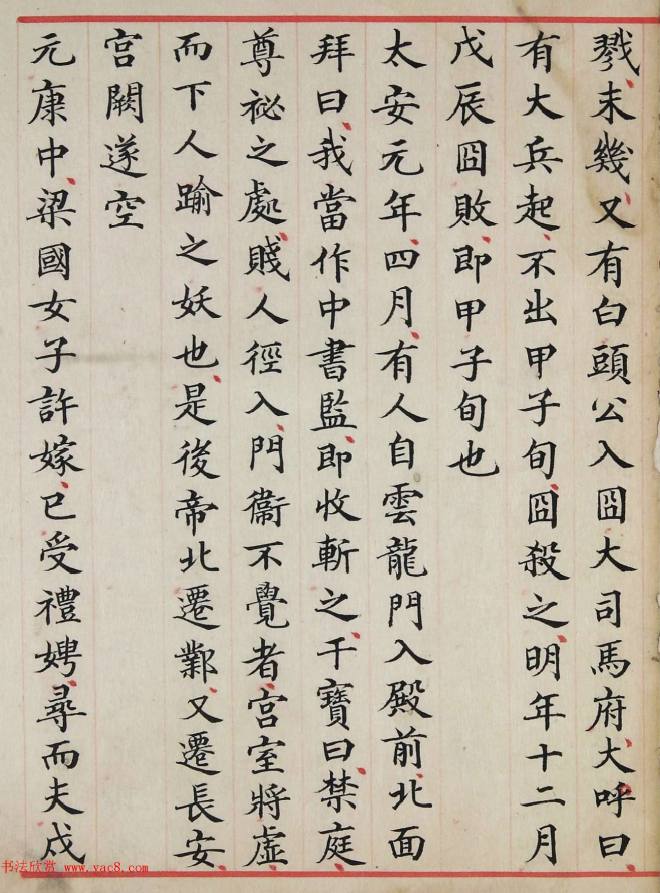 戮、未幾、又有白頭公入囧大司馬府、大呼曰、
有大兵起、不出甲子旬、囧殺之、明年十二月
戊辰囧敗、即甲子旬也
太安元年、四月、有人自雲龍門入殿前、北面
拜曰、我當作中書監、即收斬之、干寶曰、禁庭、
尊祕之處、賤人徑入、門衞不覺者、宮室將虛、
而下人踰之妖也、是後帝北遷鄴、又遷長安、
宮闕遂空
元康中、梁國女子許嫁、已受禮娉、尋而夫戍
书法欣赏 www.yac8.com